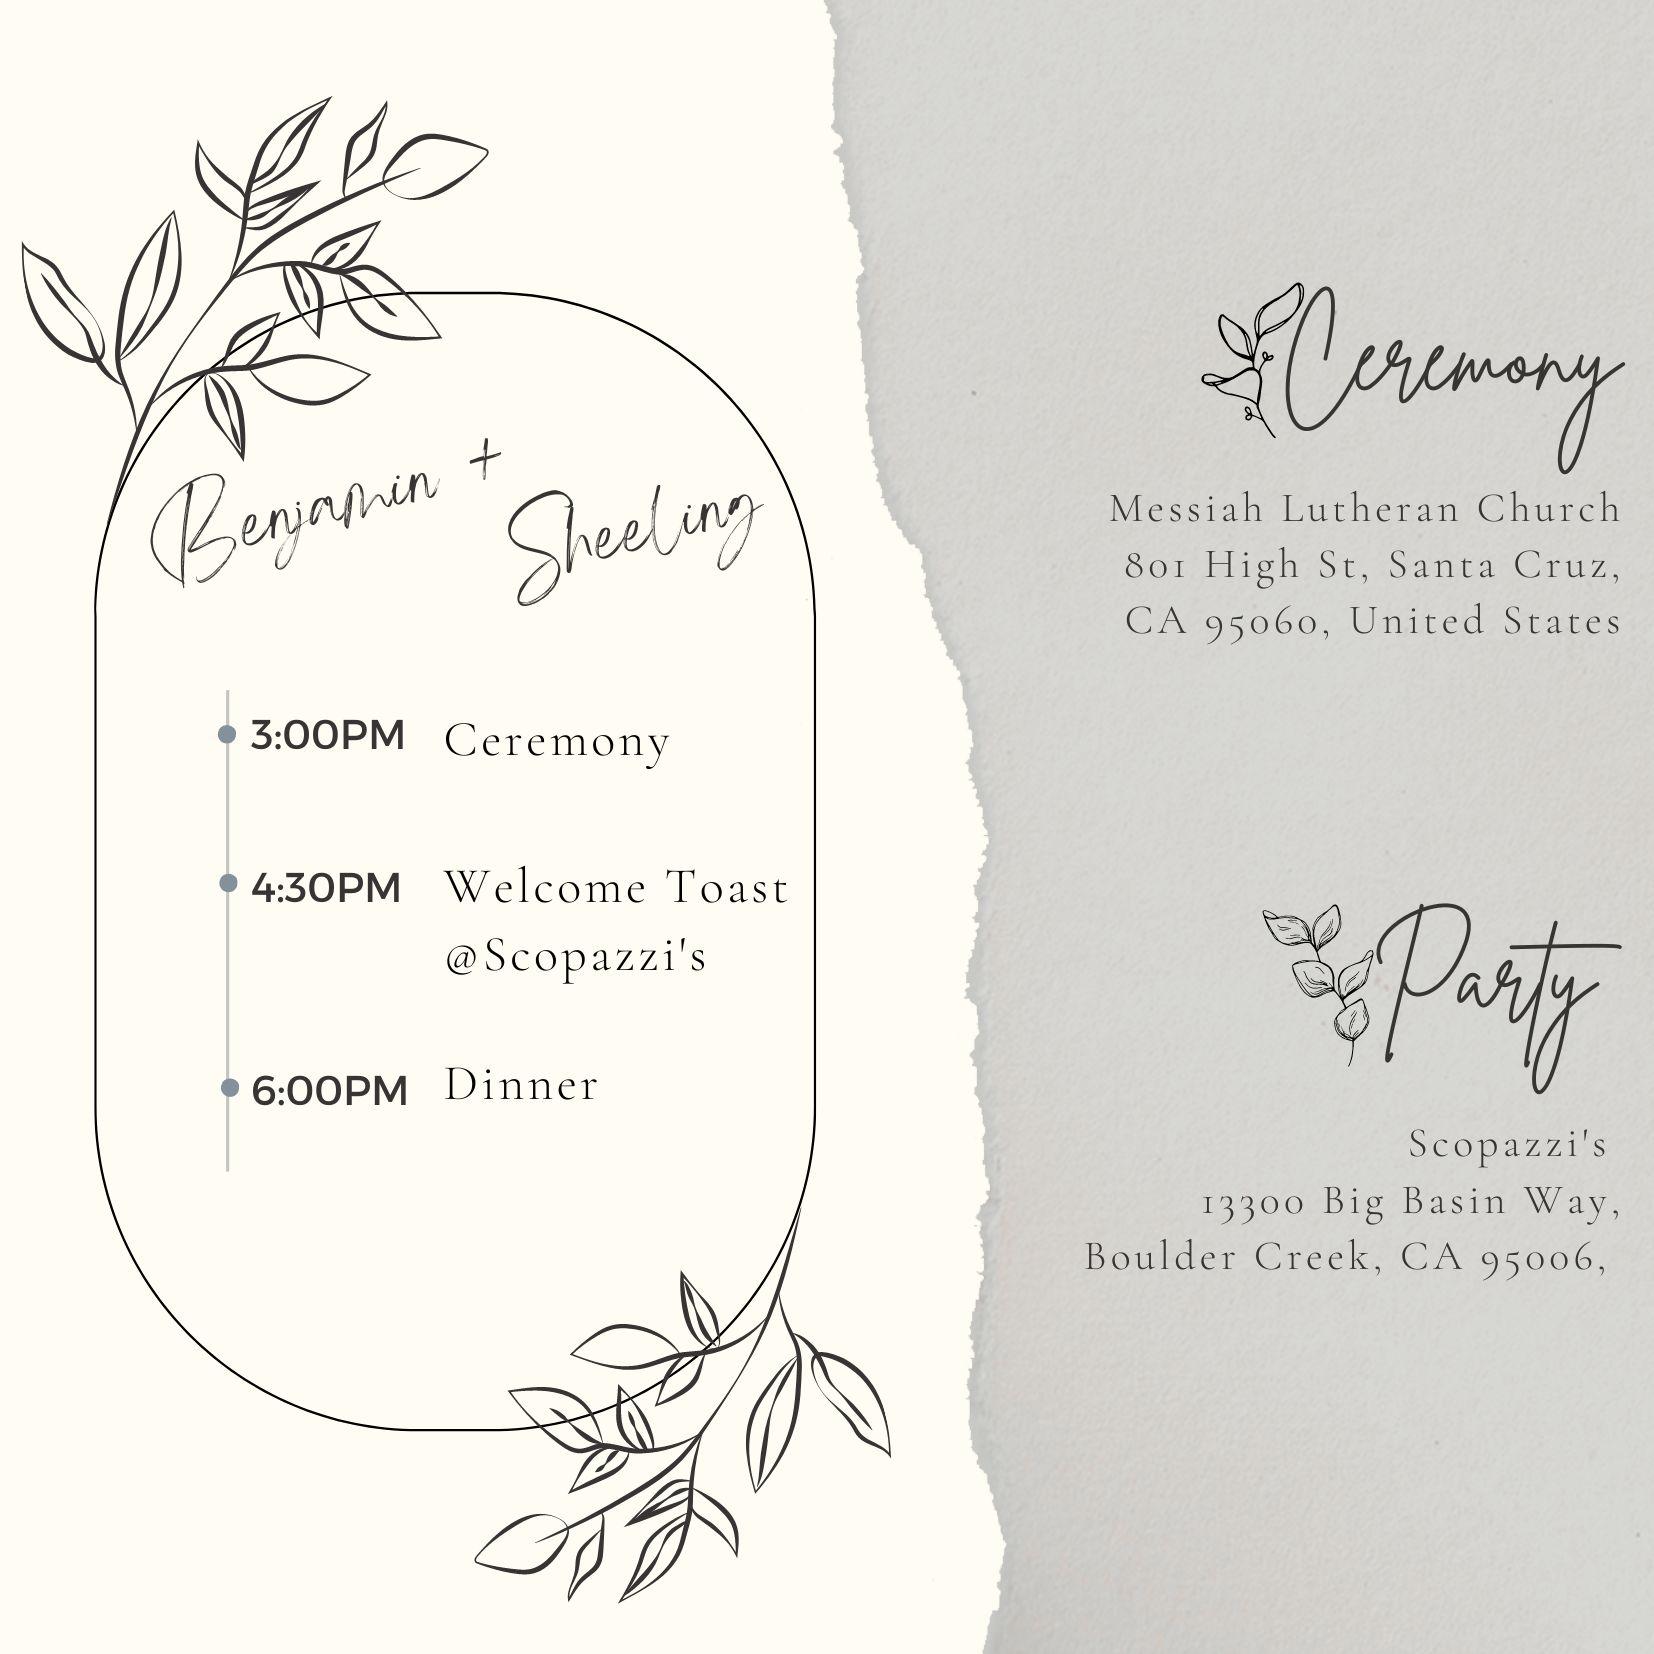 Benjamin +
Sheeling
3:00PM Ceremony
4:30PM Welcome Toast
@Scopazzi's
6:00PM Dinner
Ceremony
Messiah Lutheran Church
801 High St, Santa Cruz,
CA 95060, United States
Party
Scopazzi's
13300 Big Basin Way,
Boulder Creek, CA 95006,